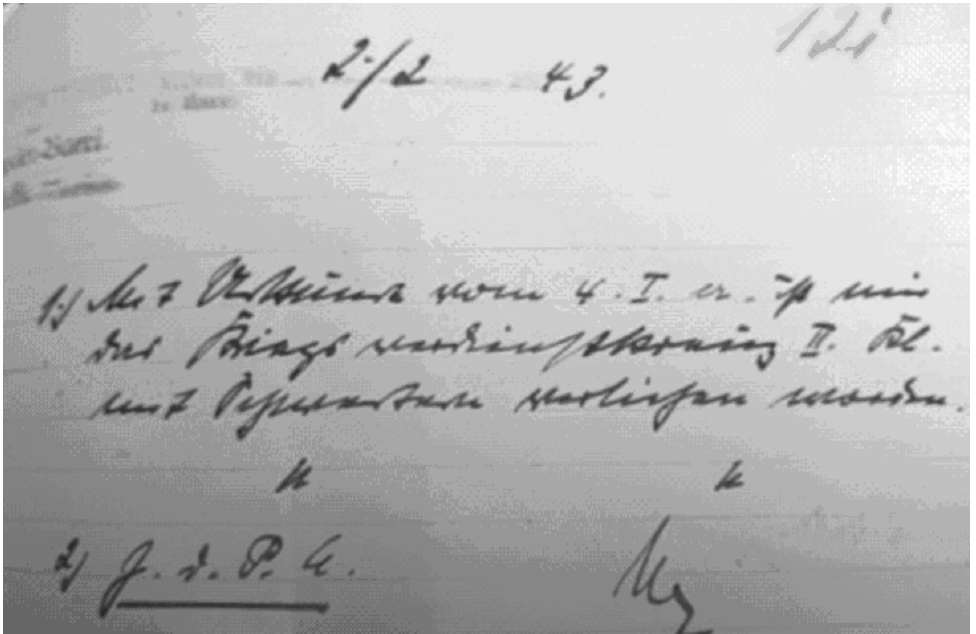 2./2 43.
1.) Mit Urkunde vom 4. I. cr. ist mir
das Kriegsverdienstkreuz II. Kl.
mit Schwertern verliehen worden.
2) Z. d. P. A.